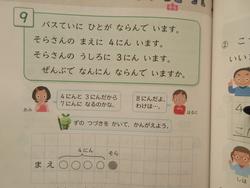 9
バスていに ひとが ならんで います。
そらさんの まえに 4にん います。
そらさんの うしろに 3にん います。
ぜんぶで なんにん ならんで いますか。
4にんと 3にんだから
7にんに なるのかな。
8にんだよ。
わけは…。
ずの つづきを かいて、かんがえよう。
4にん
そら
まえ